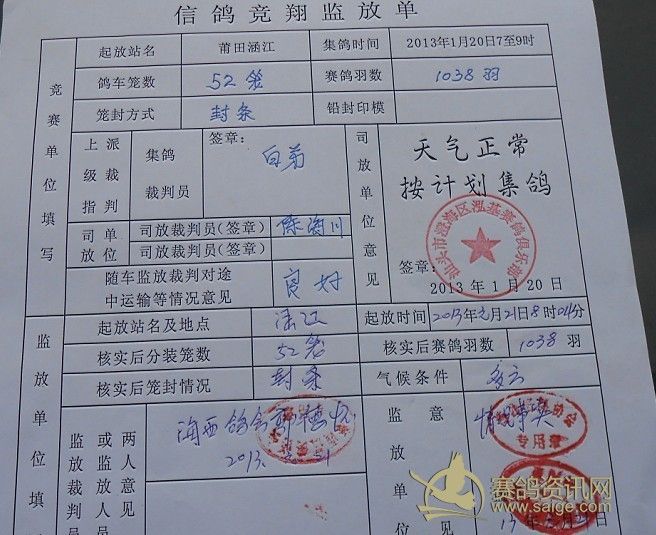 信鸽竞翔监放单
竞赛单位填写
起放站名 莆田涵江 集鸽时间 2013年1月20日7至9时
鸽车笼数 52笼 赛鸽羽数 1038羽
笼封方式 封条 铅封印模
上级指派裁判 集鸽裁判员 签章：
司放单位意见 天气正常
按计划集鸽
汕头市澄海区泓基赛鸽俱乐部
签章：
2013年1月20日
司放单位 司放裁判员(签章) 陈海川
司放裁判员(签章)
随车监放裁判对途中运输等情况意见 良好
监放单位填写
起放站名及地点 涵江 起放时间 2013年元月21日8时04分
核实后分装笼数 52笼 核实后赛鸽羽数 1038羽
核实后笼封情况 封条 气候条件 多云
监放裁判员或两监放人员意见 海西鸽会
2013.
监放单位意见 情况事实
专用章
13年元月21日
赛鸽资讯网
www.saige.com